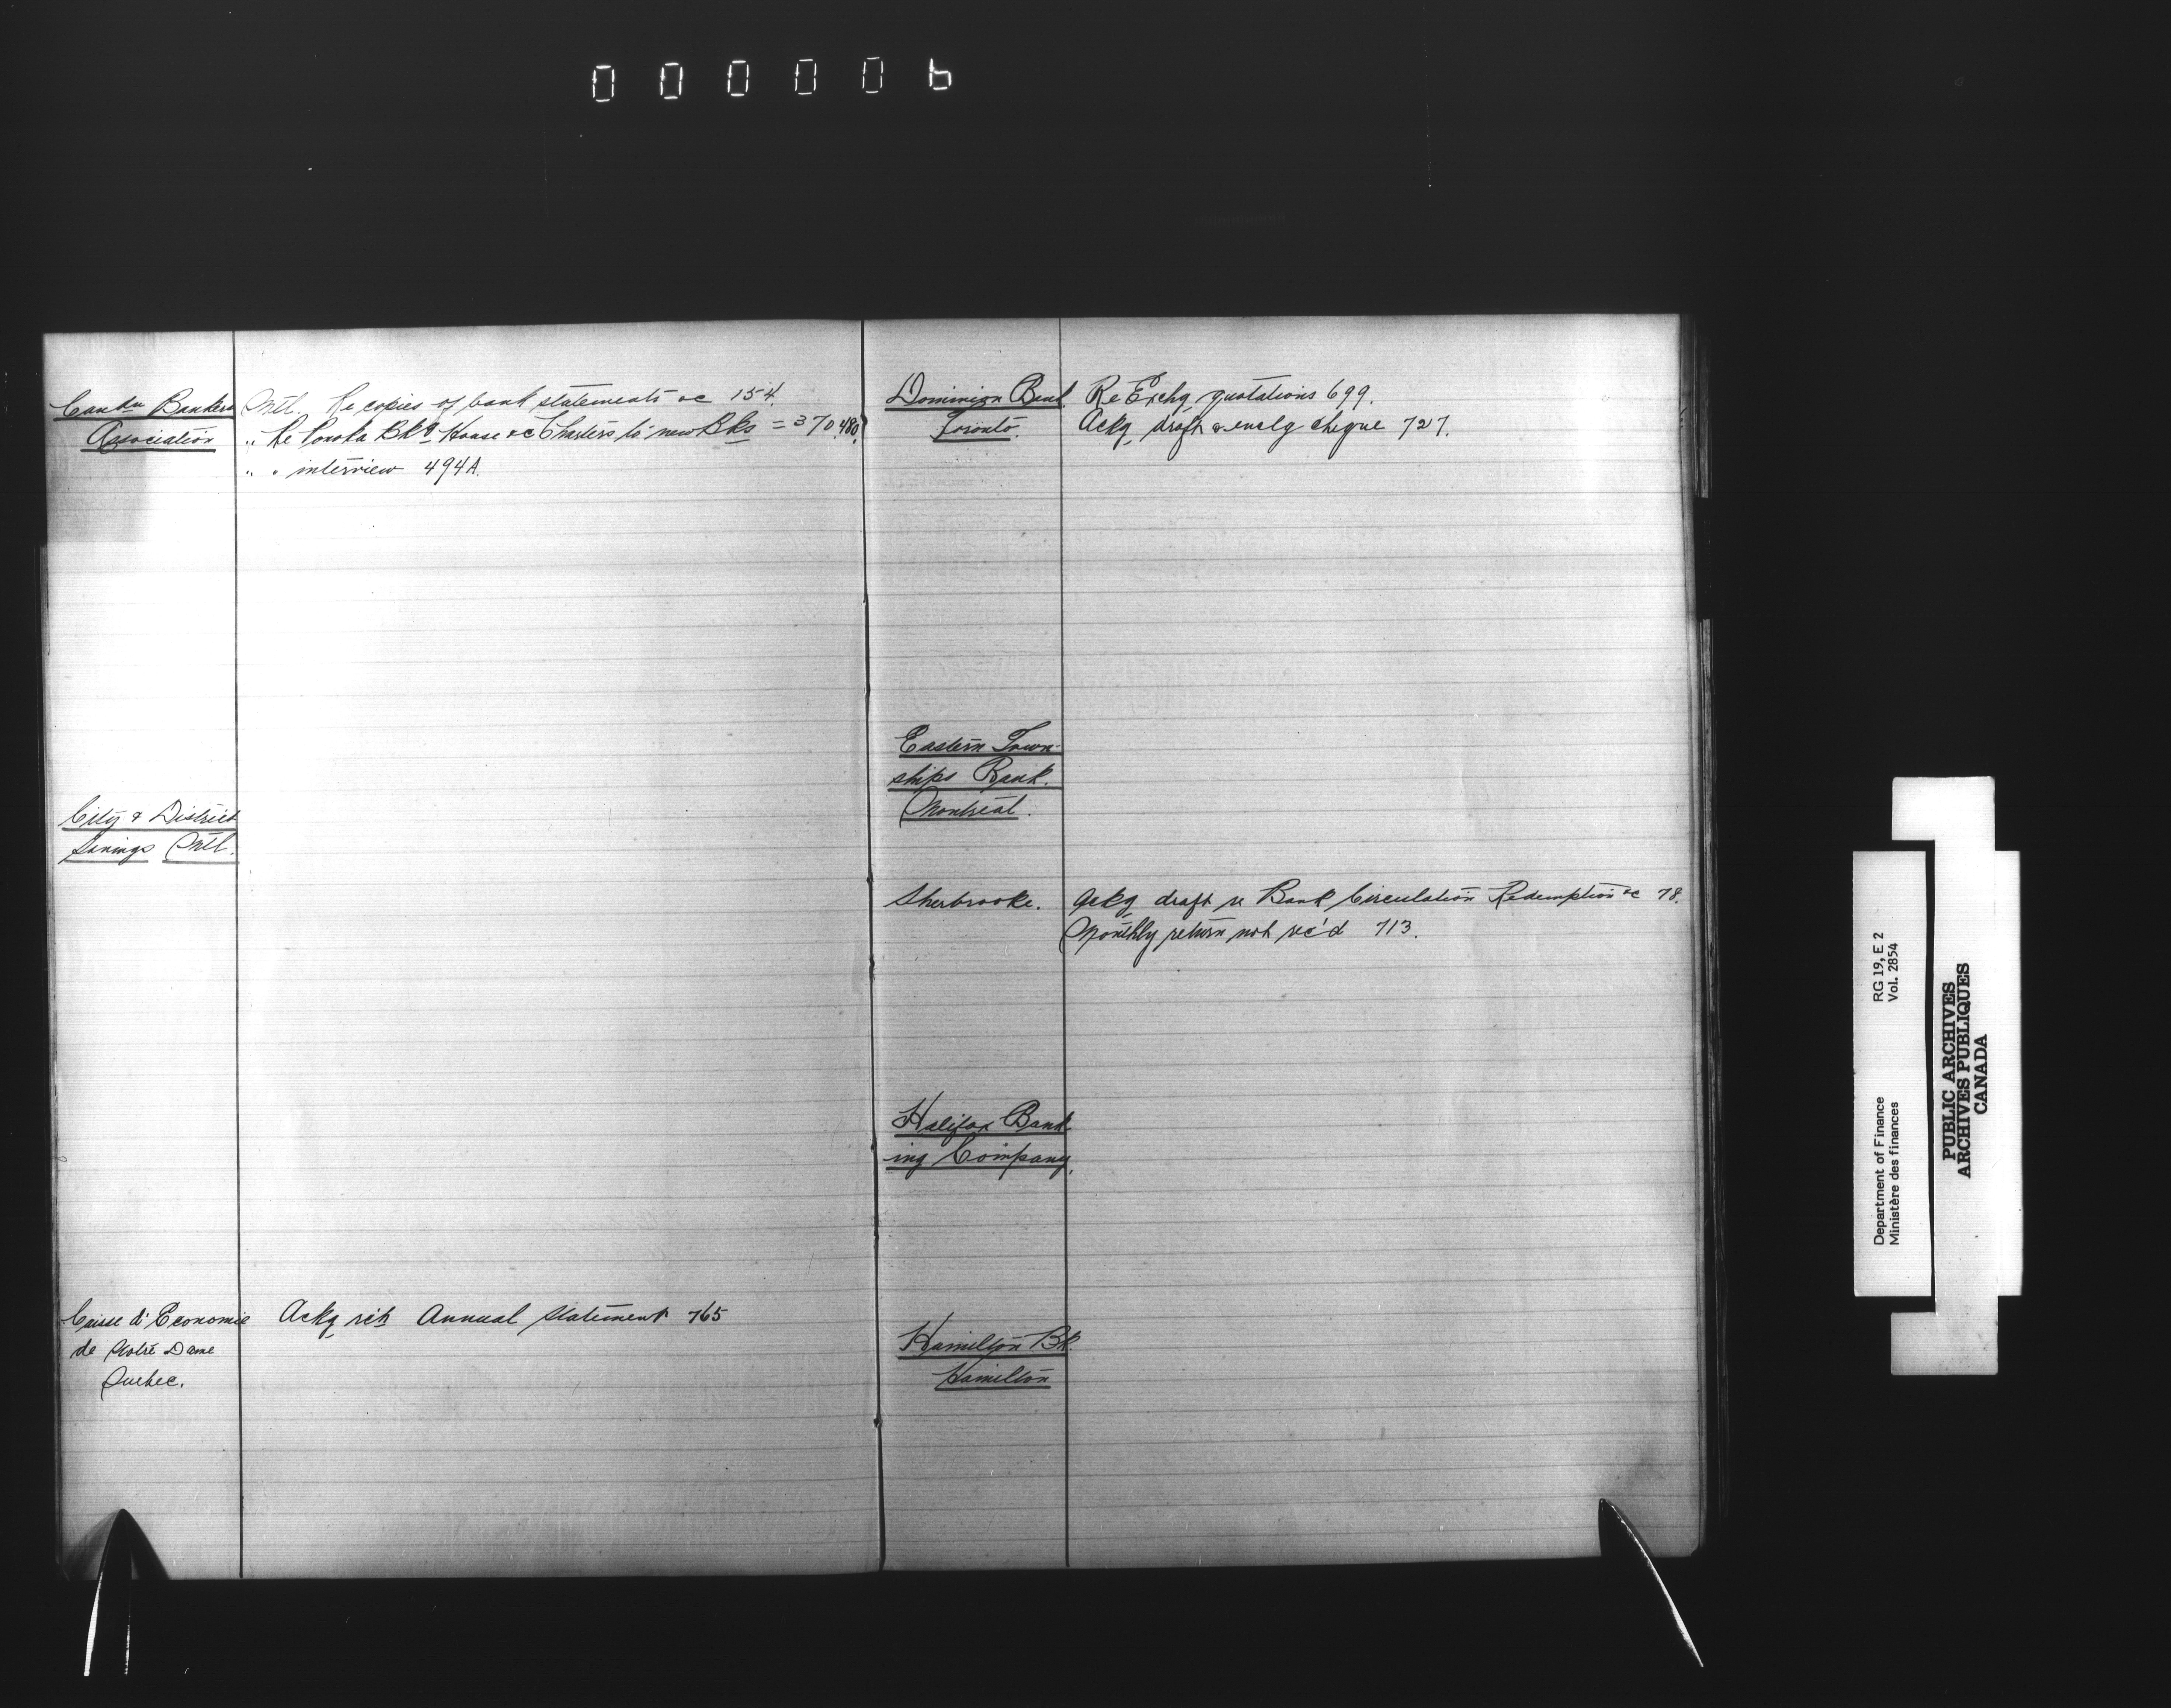 000006
Candn Bankers
Association
Mtl. Re copies of bank statements &c 154.
" Re Ponoka Bkg House &c Charters to new Bks = 370 480
" " interview 494A.
City & District
Savings Mtl.
Caisse d'Economie
de Notre Dame
Quebec.
Ackg rct Annual Statement 765
Dominion Bank
Toronto.
Re Exchg quotations 699.
Ackg draft & enclg cheque 727.
Eastern Town-
ships Bank.
Montreal.
Sherbrooke.
Ackg draft re Bank Circulation Redemption &c 78.
Monthly return not rec'd 713.
Halifax Bank
ing Company.
Hamilton Bk.
Hamilton
Department of Finance RG 19, E 2
Ministère des finances Vol. 2854
PUBLIC ARCHIVES
ARCHIVES PUBLIQUES
CANADA